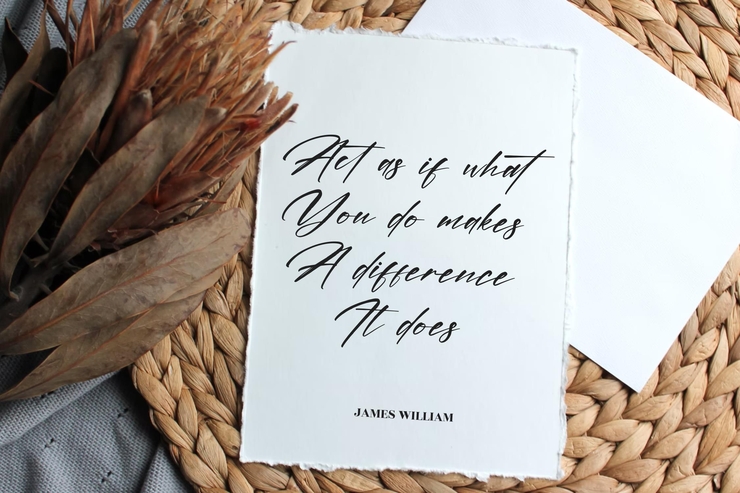 Act as if what
You do makes
A difference
It does
JAMES WILLIAM